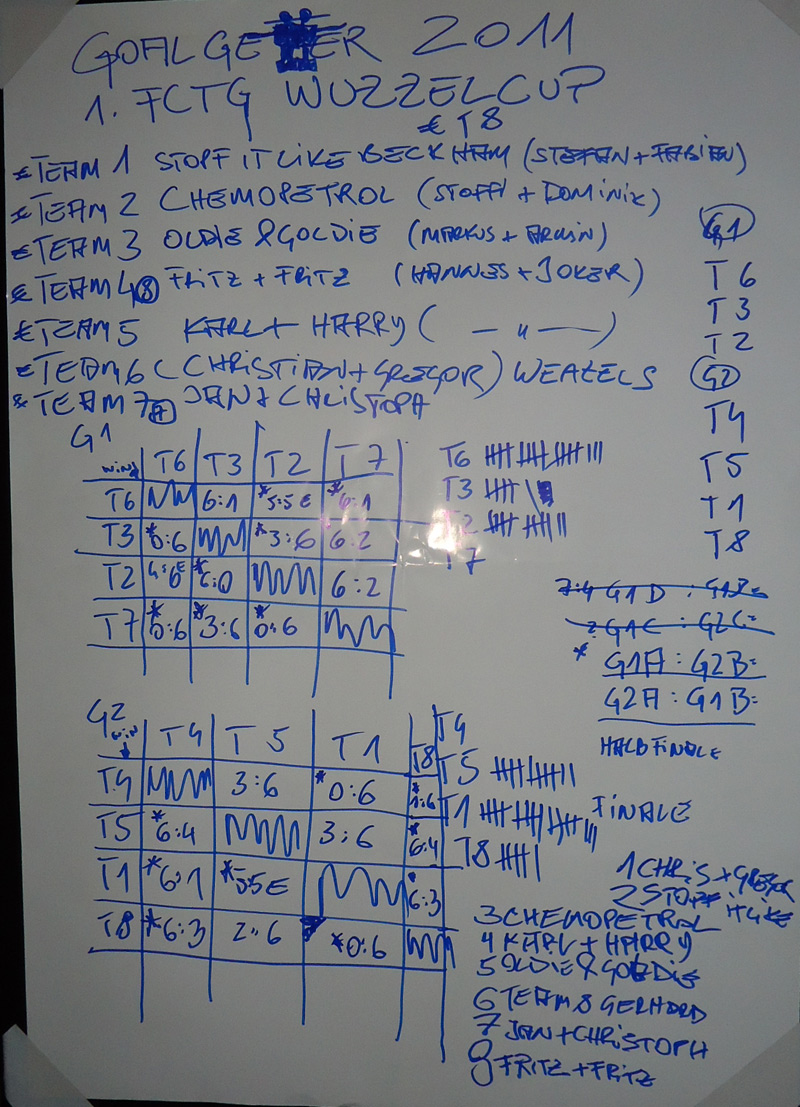 GOALGETTER 2011
1. FCTG WUZZELCUP
€ T8
€ TEAM 1 STOPF IT LIKE BECKHAM (STEFAN + FABIAN)
€ TEAM 2 CHEMOPETROL (STOFFI + DOMINIK)
€ TEAM 3 OLDIE & GOLDIE (MARKUS + ARMIN)
€ TEAM 4 FRITZ + FRITZ (HANNES + JOKER)
€ TEAM 5 KARL + HARRY ( — " — )
€ TEAM 6 (CHRISTIAN + GREGOR) WEAZELS
€ TEAM 7 JAN + CHRISTOPH
G1
T6
T3
T2
G2
T4
T5
T1
T8
G1
T6 T3 T2 T7
T6 6:1 *5:5 E *6:1
T3 *0:6 *3:6 6:2
T2 *6:0 6:2
T7 *0:6 *3:6 *0:6
T6
T3
T2
T7
*G1A : G2B =
G2A : G1B =
HALBFINALE
G2
T4 T5 T1 T8
T4 3:6 *0:6 *1:6
T5 *6:4 3:6 *6:4
T1 *6:1 *5:5 E *6:3
T8 *6:3 2:6 *0:6
T4
T5
T1
T8
FINALE
1 CHRIS + GREGOR
2 STOPF IT LIKE
3 CHEMOPETROL
4 KARL + HARRY
5 OLDIE & GOLDIE
6 TEAM 8 GERHARD
7 JAN + CHRISTOPH
8 FRITZ + FRITZ